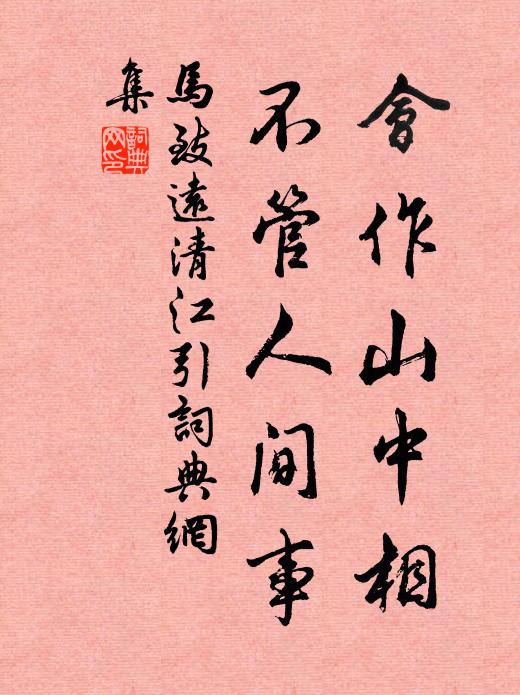 會作山中相
不管人間事
馬致遠清江引詞典網
集
詞典網印